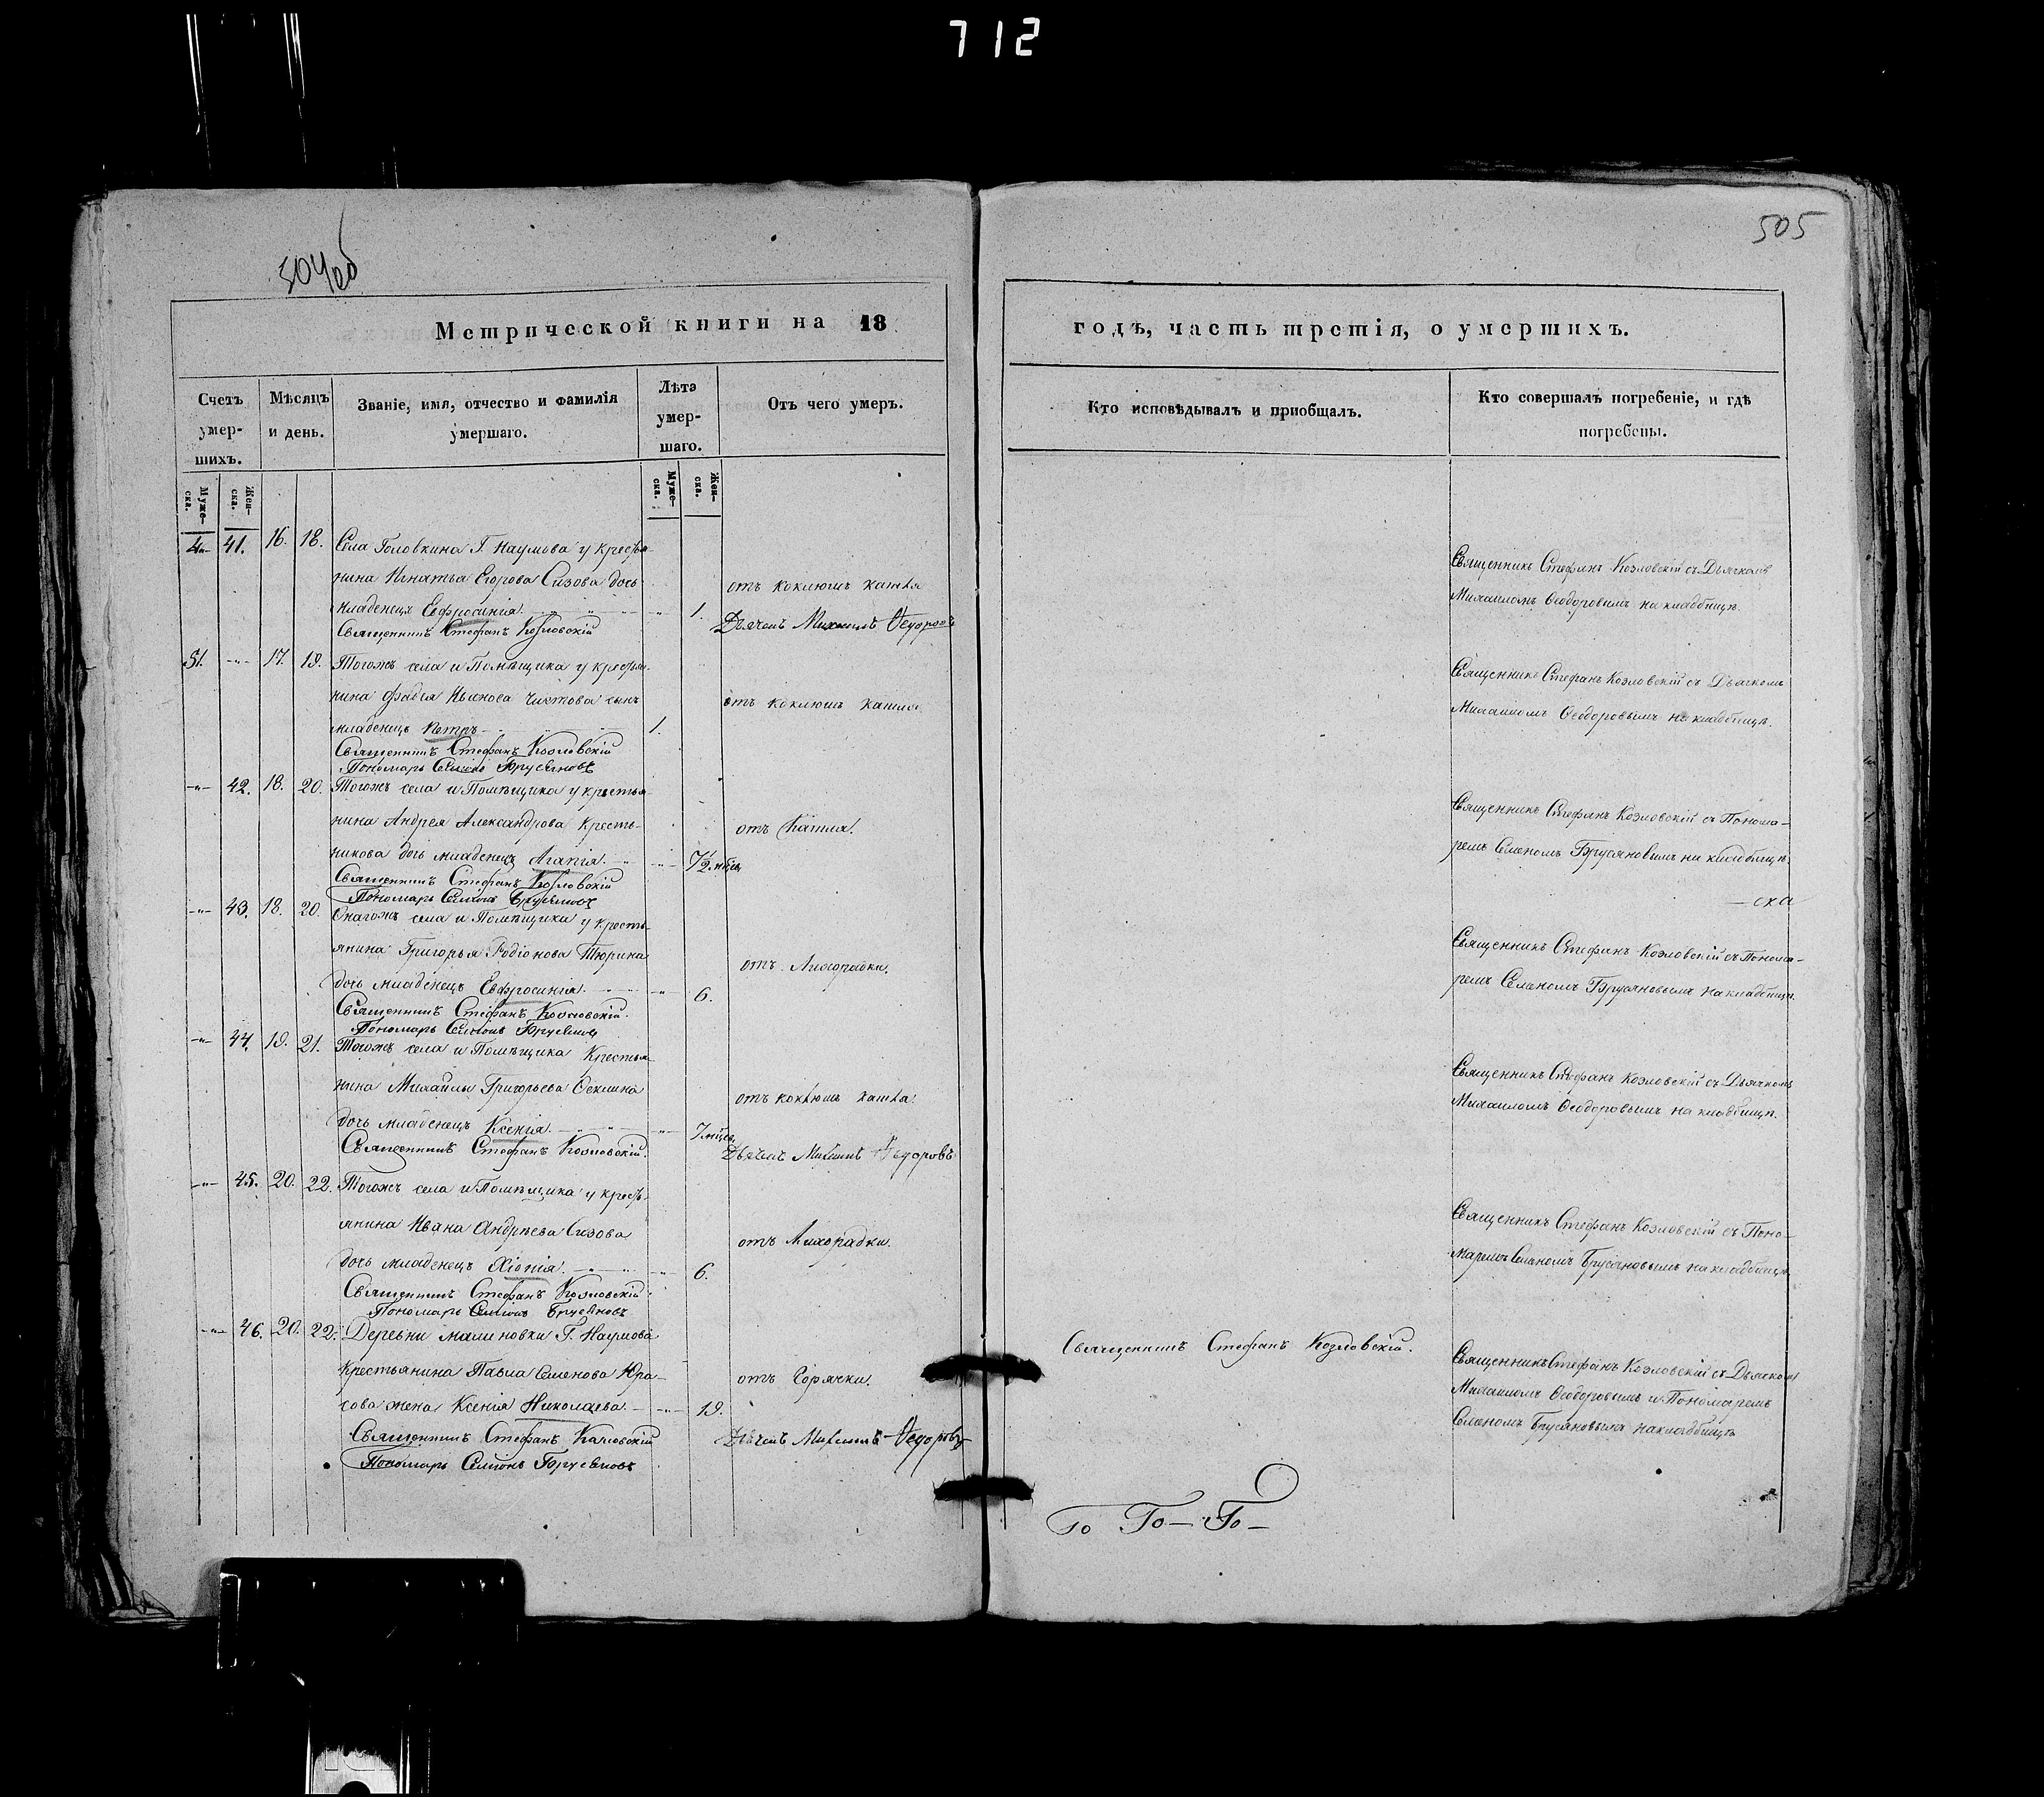 712
504об
505
Метрической книги на 18
годъ, часть третія, о умершихъ.
Счетъ умер-шихъ.
Мѣсяцъ и день.
Званіе, имя, отчество и фамилія умершаго.
Лѣта умер-шаго.
Отъ чего умеръ.
Кто исповѣдывалъ и пріобщалъ.
Кто совершалъ погребеніе, и гдѣ погребены.
Муже-ска.
Жен-ска.
Муже-ска.
Жен-ска.
41. 16. 18. Села Головкина Г. Наумова у крестья-
нина Игнатья Егорова Сизова дочь
отъ коклюшъ кашля
младенецъ Евфросинія 1.
Священникъ Стефанъ Козловскій
Дьячекъ Михаилъ Ѳедоровъ
Священникъ Стефанъ Козловскій съ Дьячкомъ
Михаиломъ Ѳеодоровымъ на кладбищѣ.
51. -"- 17. 19. Тогожъ села и Помѣщика у крестья-
нина Фадея Иванова Чистова сынъ
отъ коклюшъ кашля
младенецъ Петръ 1.
Священникъ Стефанъ Козловскій
Пономарь Семіонъ Брусяновъ
Священникъ Стефанъ Козловскій съ Дьячкомъ
Михаиломъ Ѳеодоровымъ на кладбищѣ.
-"- 42. 18. 20. Тогожъ села и Помѣщика у крестья-
нина Андрея Александрова Кресть-
отъ Кашля.
никова дочь младенецъ Агапія. 7½ мѣсяц
Священникъ Стефанъ Козловскій
Пономарь Семіонъ Брусяновъ
Священникъ Стефанъ Козловскій съ Понома-
ремъ Семеномъ Брусяновымъ на кладбищѣ.
-ска
-"- 43. 18. 20. Онагожъ села и Помѣщика у кресть-
янина Григорья Родіонова Тюрина
отъ Лихорадки.
дочь младенецъ Евфросинія. 6.
Священникъ Стефанъ Козловскій.
Пономарь Семіонъ Брусяновъ
Священникъ Стефанъ Козловскій съ Понома-
ремъ Семеномъ Брусяновымъ на кладбищѣ.
-"- 44. 19. 21. Тогожъ села и Помѣщика Крестья-
нина Михаилы Григорьева
отъ коклюшъ кашля.
дочь младенецъ Ксенія. 7 мѣсц.
Священникъ Стефанъ Козловскій.
Дьячекъ Михаилъ Ѳедоровъ
Священникъ Стефанъ Козловскій съ Дьячкомъ
Михаиломъ Ѳеодоровымъ на кладбищѣ.
-"- 45. 20. 22. Тогожъ села и Помѣщика у кресть-
янина Ивана Андрѣева Сизова
отъ Лихорадки.
дочь младенецъ Хіонія. 6.
Священникъ Стефанъ Козловскій
Пономарь Семіонъ Брусяновъ
Священникъ Стефанъ Козловскій съ Поно-
маремъ Семеномъ Брусяновымъ на кладбищѣ
-"- 46. 20. 22. Деревни малиновки Г. Наумова
крестьянина Павла Семенова Юра-
отъ Горячки.
сова жена Ксенія Николаева. 19.
Священникъ Стефанъ Козловскій
Дьячекъ Михаилъ Ѳедоровъ
Пономарь Семіонъ Брусяновъ
Священникъ Стефанъ Козловскій.
Священникъ Стефанъ Козловскій съ Дьячкомъ
Михаиломъ Ѳеодоровымъ и Пономаремъ
Семеномъ Брусяновымъ на кладбищѣ
Го Го- Го-